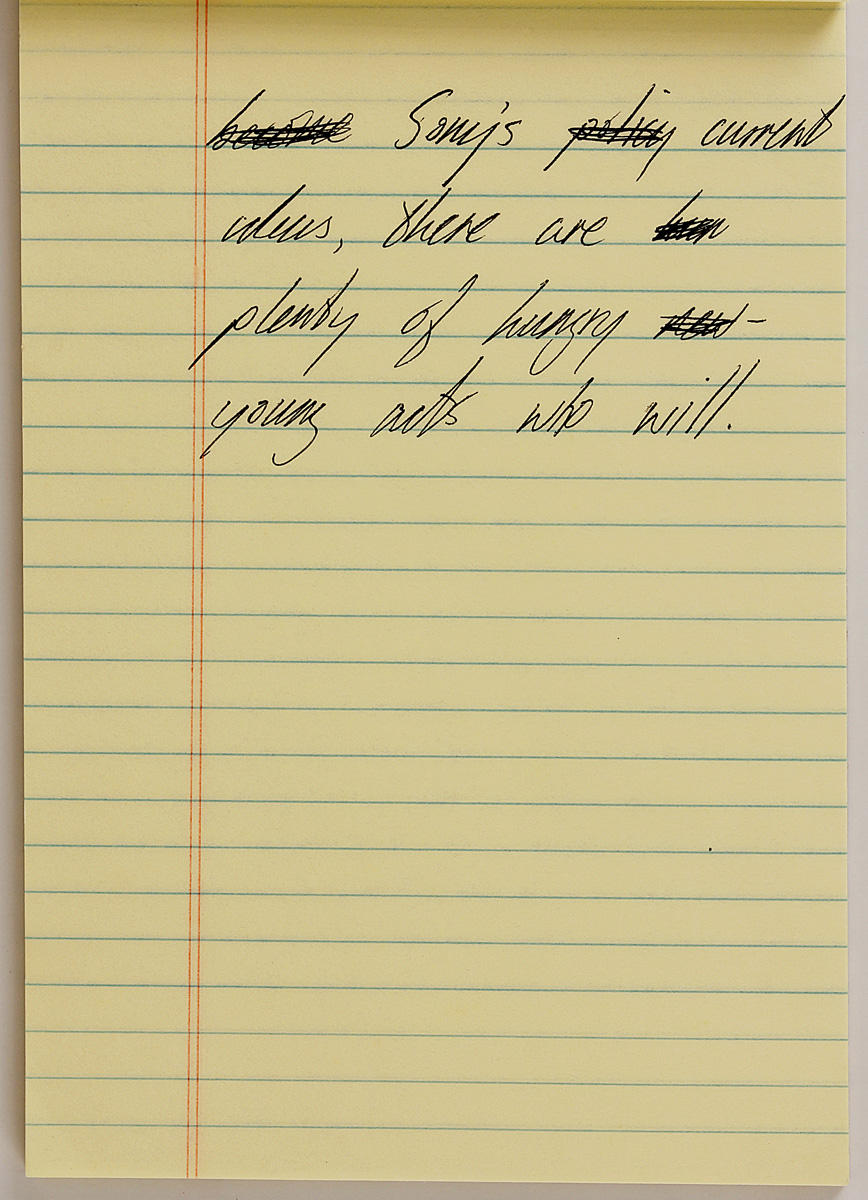 become Sony's policy current
ideas, there are
plenty of hungry new-
young acts who will.